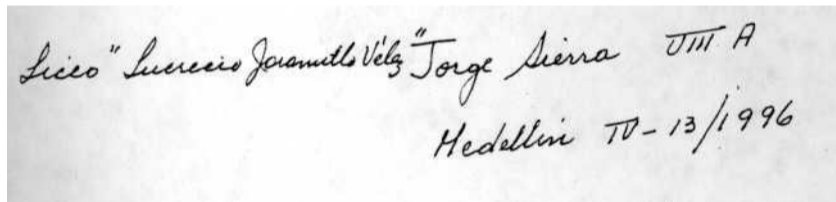 Liceo "Lucrecio Jaramillo Vélez" Jorge Sierra VIII A
Medellin IV - 13/1996